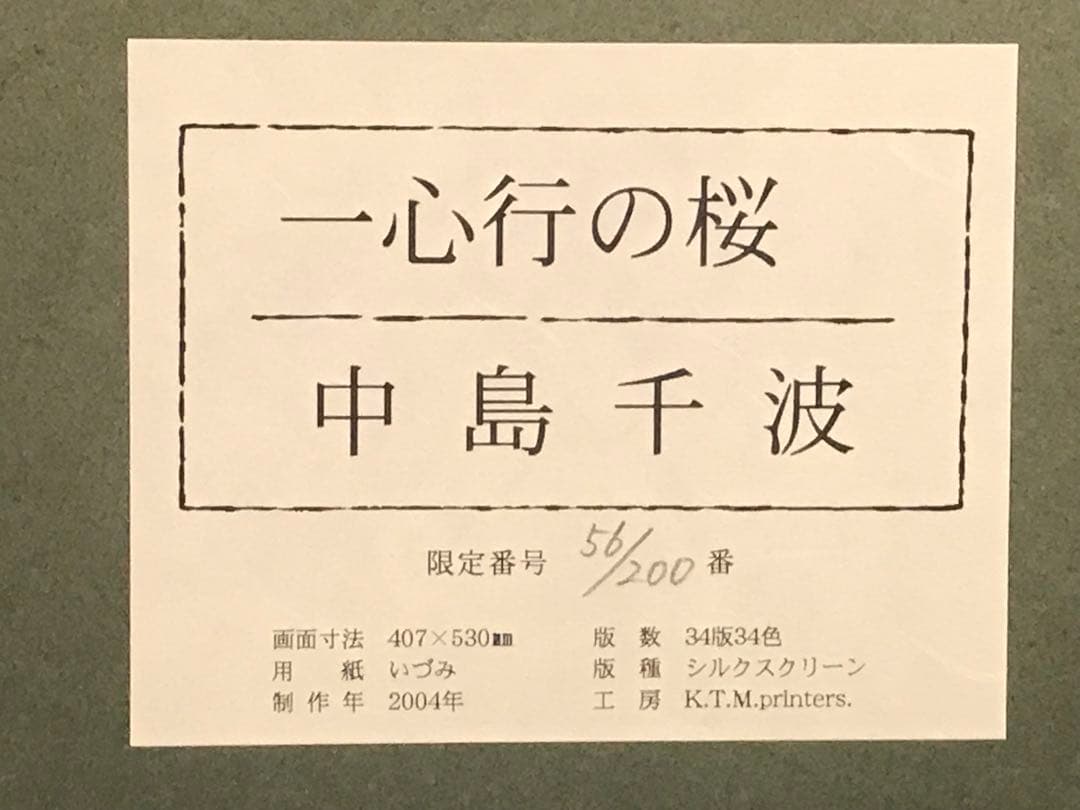 一心行の桜
中島千波
限定番号 56/200 番
画面寸法 407×530㎜ 版数 34版34色
用紙 いづみ 版種 シルクスクリーン
制作年 2004年 工房 K.T.M.printers.